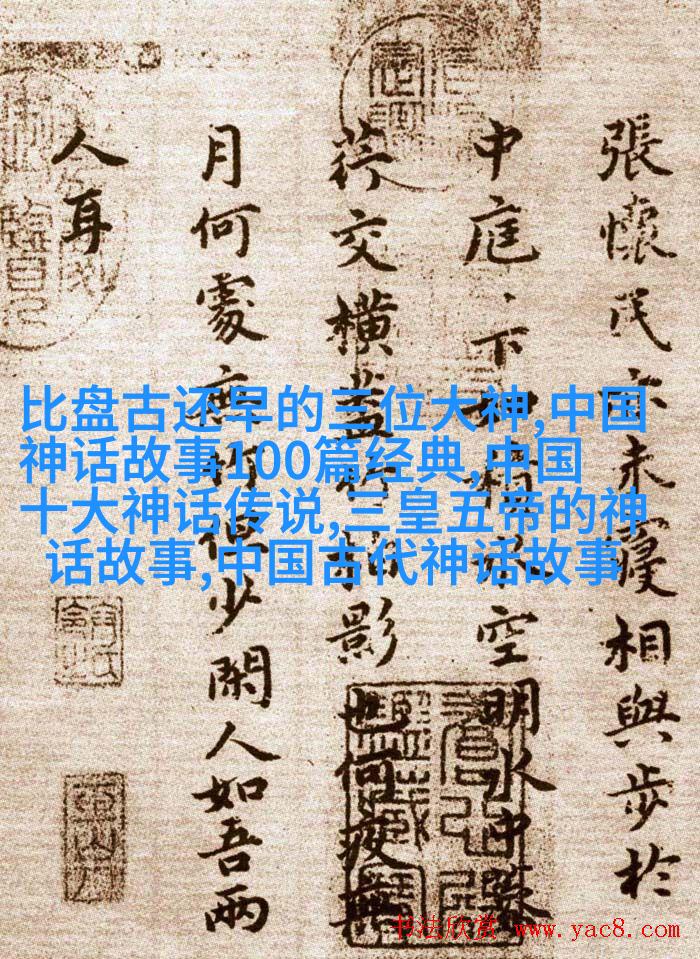 張懷民亦未寢相與步於
中庭、下如積水空明水中藻
荇交橫蓋竹柏影也何夜無
月何處無竹但少閑人如吾兩
人耳
比盘古还早的三位大神,中国
神话故事100篇经典,中国
十大神话传说,三皇五帝的神
话故事,中国古代神话故事
书法欣赏 www.yac8.com